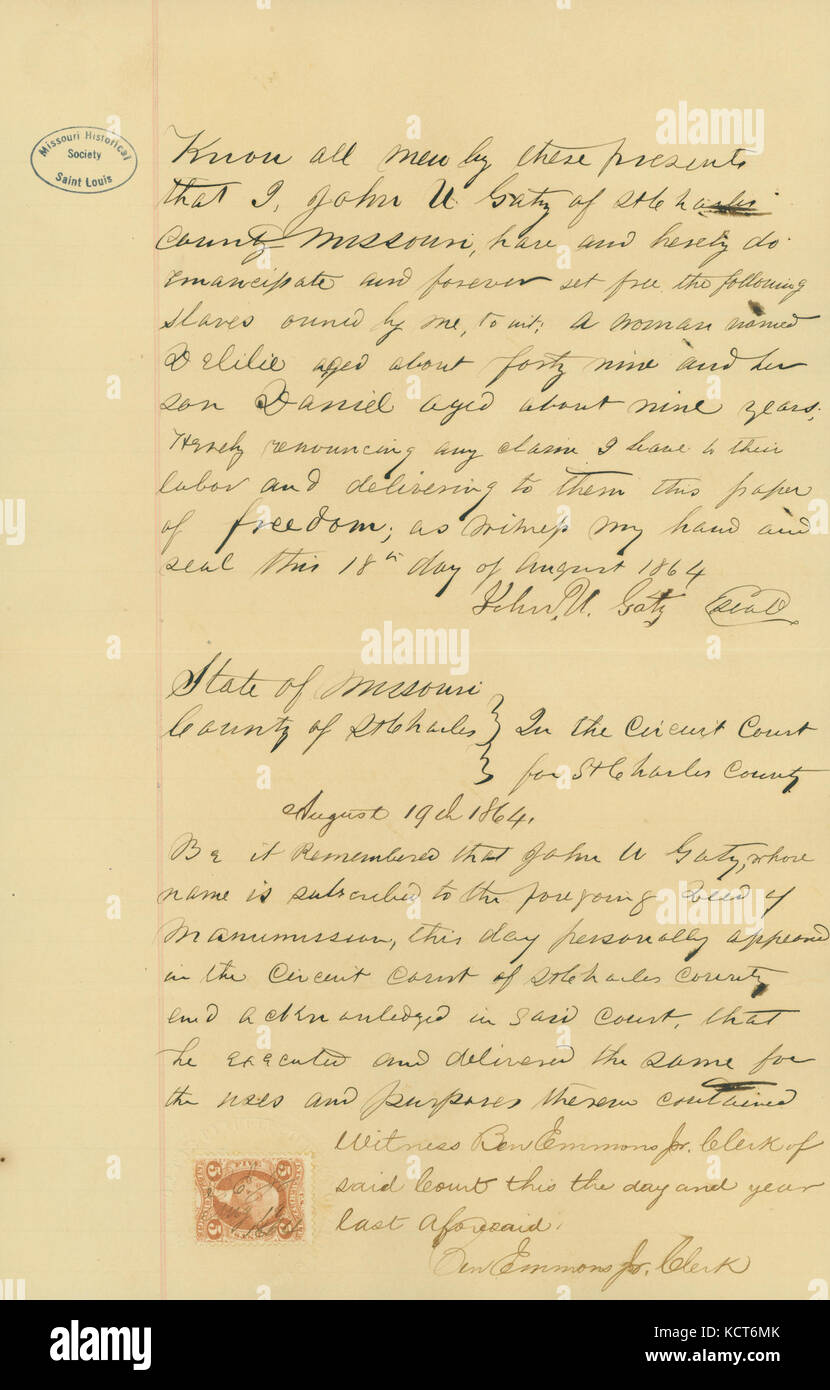 Missouri Historical
Society
Saint Louis
Know all men by these presents
that I, John U Gaty of St Charles
County Missouri, have and hereby do
emancipate and forever set free the following
slaves owned by me, to wit; A woman named
Delilie aged about forty nine and her
son Daniel aged about nine years;
Hereby renouncing any claim I have to their
labor and delivering to them this paper
of freedom; as witness my hand and
seal this 18th day of August 1864
John, U. Gaty Seal
State of Missouri
County of St Charles } In the Circuit Court
} for St Charles County
August 19th 1864.
Be it Remembered that John U Gaty, whose
name is subscribed to the foregoing Deed of
Manumission, this day personally appeared
in the Circuit Court of St Charles County
and acknowledged in said Court, that
he executed and delivered the same for
the uses and purposes therein contained
Witness Ben Emmons Jr. Clerk of
said Court this the day and year
last aforesaid.
Ben Emmons Jr. Clerk
5 FIVE 5
5 5
alamy
a
alamy stock photo
KCT6MK
www.alamy.com